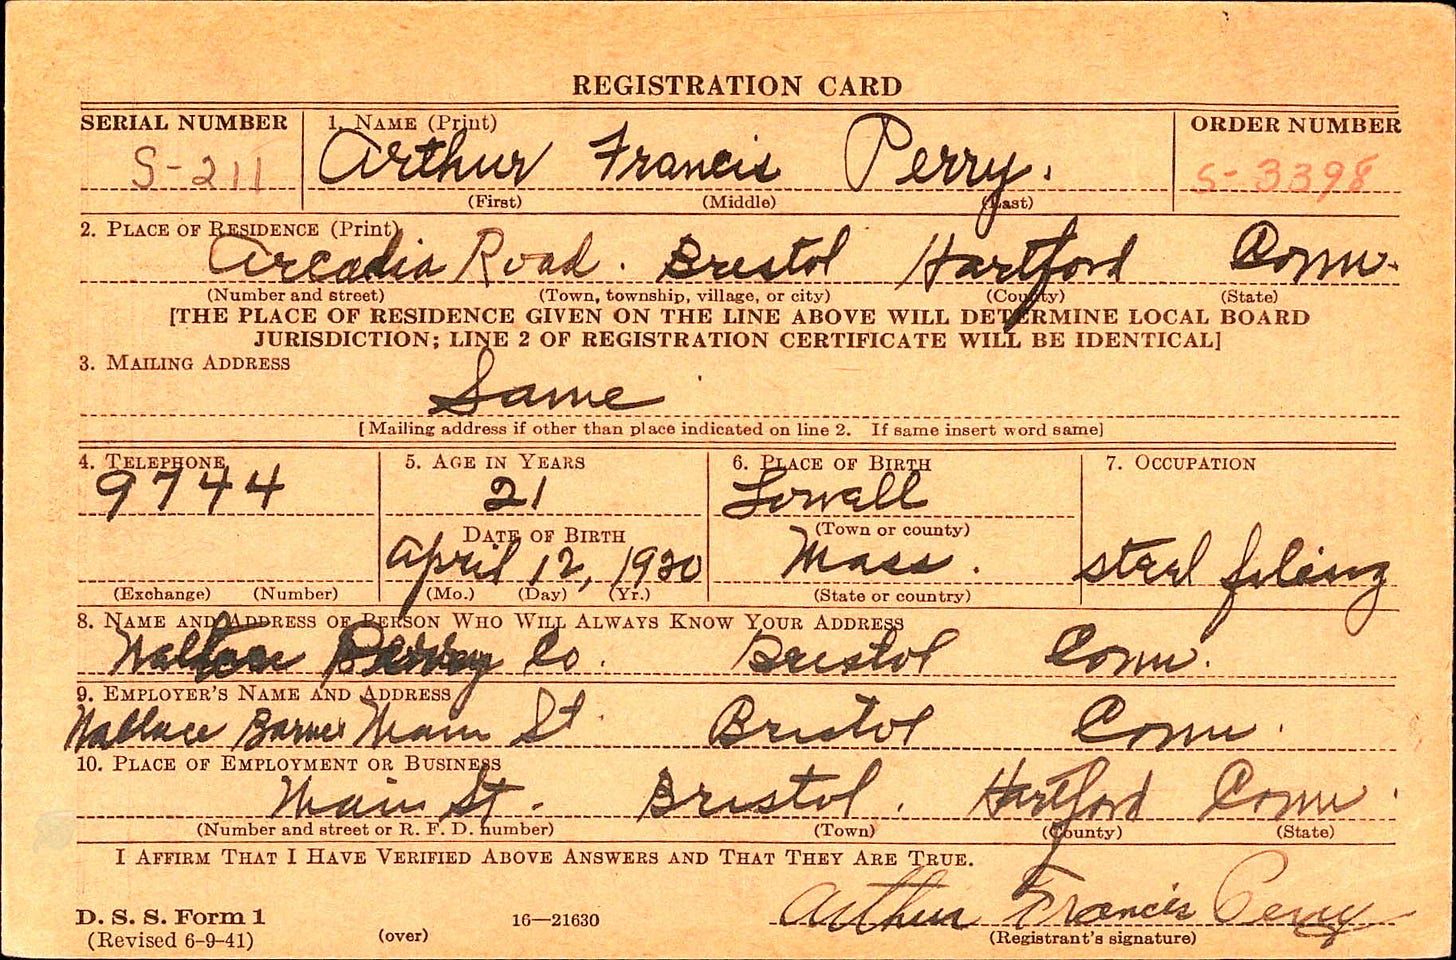 REGISTRATION CARD
SERIAL NUMBER 1. NAME (Print) ORDER NUMBER
S-211 Arthur Francis Perry. S-3398
(First) (Middle) (Last)
2. PLACE OF RESIDENCE (Print)
Arcadia Road. Bristol Hartford Conn.
(Number and street) (Town, township, village, or city) (County) (State)
[THE PLACE OF RESIDENCE GIVEN ON THE LINE ABOVE WILL DETERMINE LOCAL BOARD
JURISDICTION; LINE 2 OF REGISTRATION CERTIFICATE WILL BE IDENTICAL]
3. MAILING ADDRESS
Same
[Mailing address if other than place indicated on line 2. If same insert word same]
4. TELEPHONE 5. AGE IN YEARS 6. PLACE OF BIRTH 7. OCCUPATION
9744 21 Lowell
DATE OF BIRTH (Town or county)
April 12, 1920 Mass. steel filing
(Exchange) (Number) (Mo.) (Day) (Yr.) (State or country)
8. NAME AND ADDRESS OF PERSON WHO WILL ALWAYS KNOW YOUR ADDRESS
Co. Bristol Conn.
9. EMPLOYER'S NAME AND ADDRESS
Wallace Barnes Main St. Bristol Conn.
10. PLACE OF EMPLOYMENT OR BUSINESS
Main St. Bristol. Hartford Conn.
(Number and street or R. F. D. number) (Town) (County) (State)
I AFFIRM THAT I HAVE VERIFIED ABOVE ANSWERS AND THAT THEY ARE TRUE.
Arthur Francis Perry
D. S. S. Form 1 16—21630
(Revised 6-9-41) (over) (Registrant's signature)